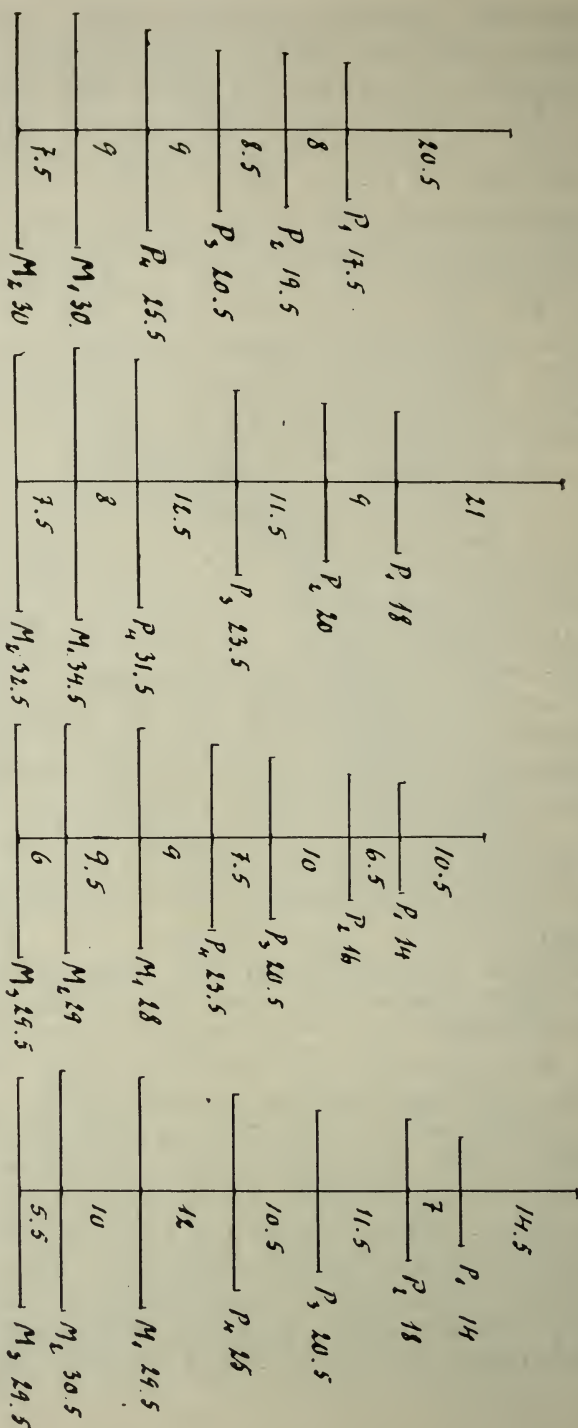 20.5
P₁ 17.5
8
P₂ 19.5
8.5
P₃ 20.5
9
P₄ 25.5
9
M₁ 30.
7.5
M₂ 30
21
P₁ 18
9
P₂ 20
11.5
P₃ 23.5
12.5
P₄ 31.5
8
M₁ 34.5
7.5
M₂ 32.5
10.5
P₁ 14
6.5
P₂ 16
10
P₃ 20.5
7.5
P₄ 23.5
9
M₁ 28
9.5
M₂ 29
6
M₃ 29.5
14.5
P₁ 14
7
P₂ 18
11.5
P₃ 20.5
10.5
P₄ 25
12
M₁ 29.5
10
M₂ 30.5
5.5
M₃ 29.5